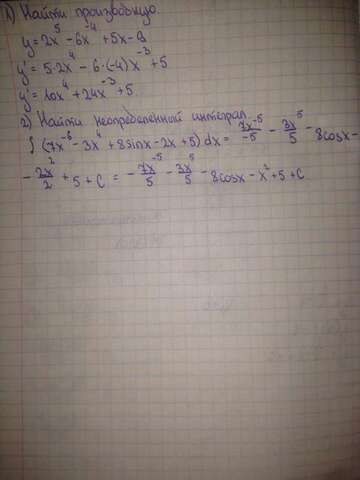 1) Найти производную.
y = 2x⁵ - 6x⁻⁴ + 5x - 9
y' = 5·2x⁴ - 6·(-4)x⁻³ + 5
y' = 10x⁴ + 24x⁻³ + 5
2) Найти неопределенный интеграл.
∫ (7x⁻⁶ - 3x⁴ + 8sinx - 2x + 5) dx = 7x⁻⁵/-5 - 3x⁵/5 - 8cosx -
- 2x²/2 + 5 + C = - 7x⁻⁵/5 - 3x⁵/5 - 8cosx - x² + 5 + C